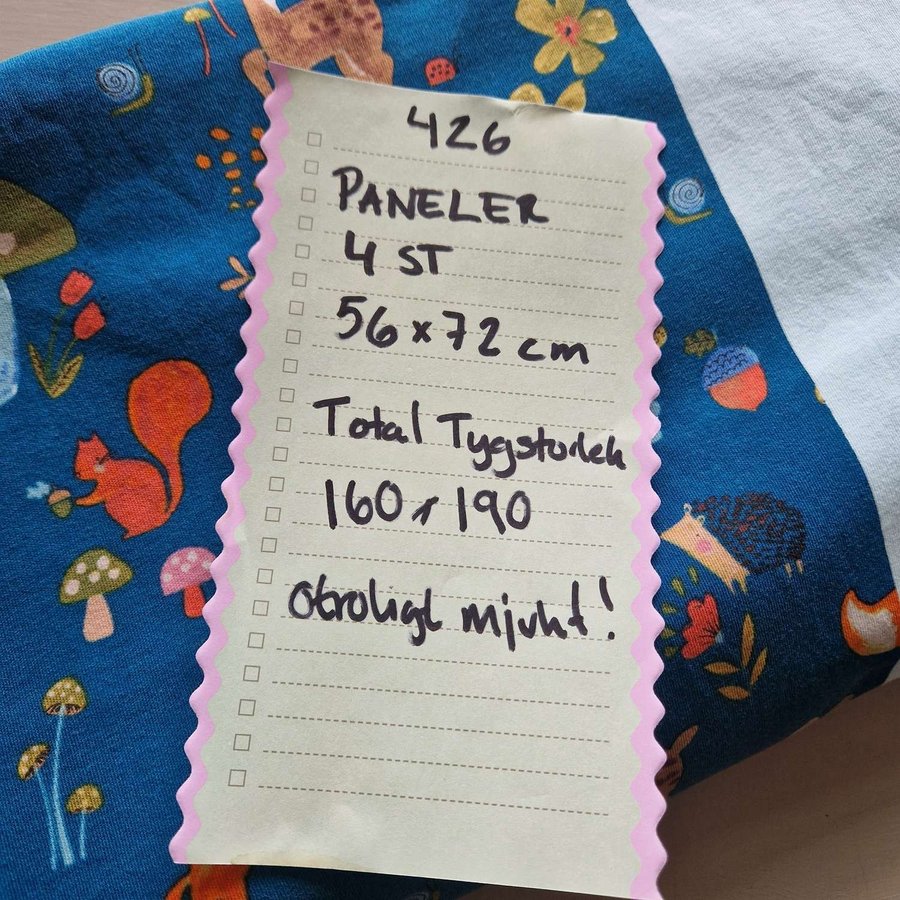 426
PANELER
4 ST
56 x 72 cm
Total Tygstorlek
160 x 190
otroligt mjukt!